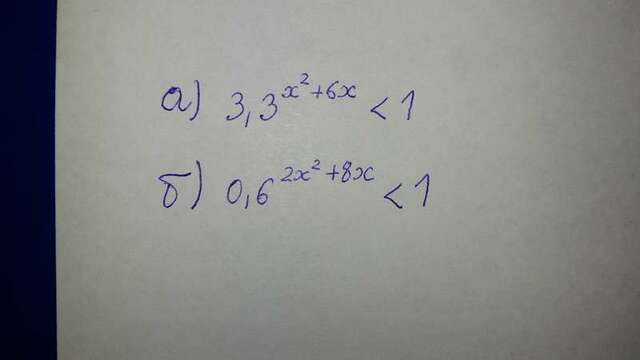 а) 3,3^{x^2+6x} < 1
б) 0,6^{2x^2+8x} < 1